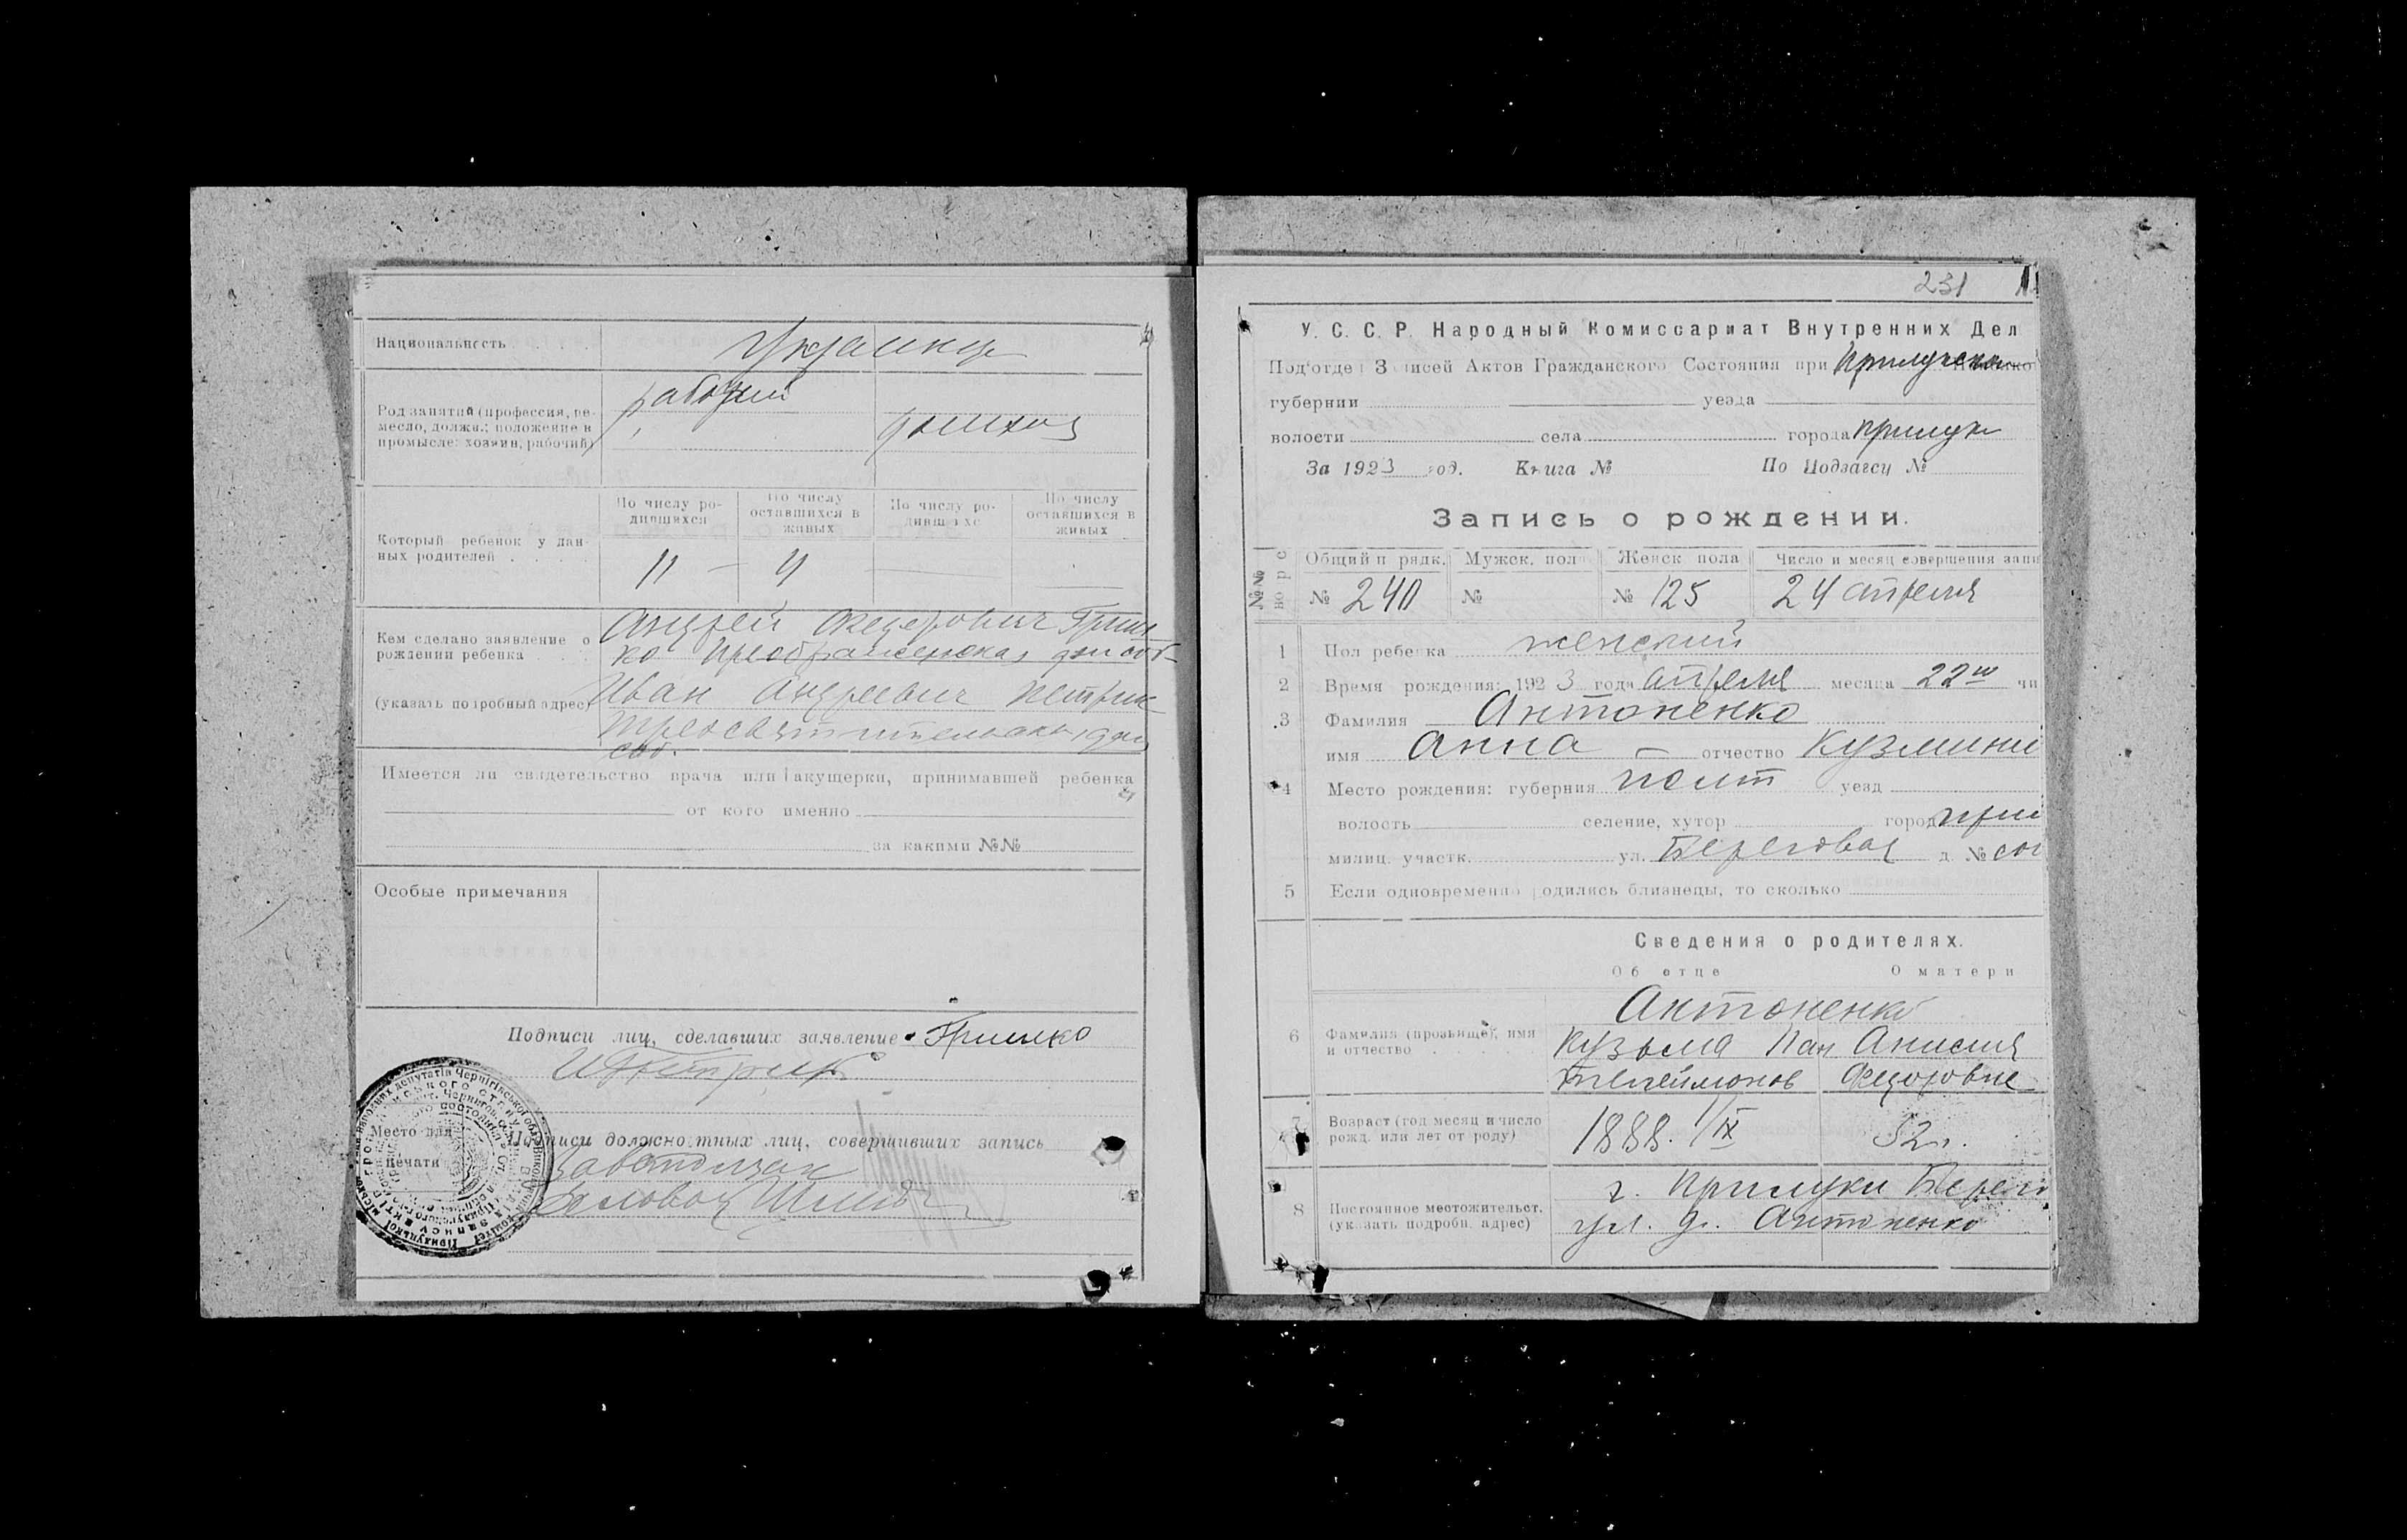 Национальность
украинцы
Род занятий (профессия, ре-
месло, должн.; положение в
промысле: хозяин, рабочий)
рабочий
домхоз
Который ребенок у дан-
ных родителей
По числу ро-
дившихся
По числу
оставшихся в
живых
По числу ро-
дившихс
По числу
оставшихся в
живых
11 — 4
Кем сделано заявление о
рождении ребенка
(указать подробный адрес)
Андрей Федорович Гриш
ко Преображенская дом соб-
Иван Андреевич Петрик
дом
соб.
Имеется ли свидетельство врача или акушерки, принимавшей ребенка
от кого именно
за какими №№
Особые примечания
Подписи лиц, сделавших заявление Гришко
ИПетрик
Место для
печати
Подписи должностных лиц, совершивших запись
231
У. С. С. Р. Народный Комиссариат Внутренних Дел
Под'отдел Записей Актов Гражданского Состояния при
губернии уезда
волости села города Прилук
За 1923 год. Книга № По Подзагсу №
Запись о рождении.
Общий п рядк. Мужск. пол Женск пола Число и месяц совершения запи
№ 240 № № 125 24 апреля
1 Пол ребенка женский
2 Время рождения: 1923 года апреля месяца 22го чи
3 Фамилия Антоненко
имя Анна — отчество Кузмини
4 Место рождения: губерния Полт уезд
волость селение, хутор город При
милиц. участк. ул. Береговая д. № соб
5 Если одновременно родились близнецы, то сколько
Сведения о родителях.
Об отце О матери
6 Фамилия (прозвище), имя
и отчество
Антоненко
Кузьма Пан Анисия
телеймонов Федоровне
7 Возраст (год месяц и число
рожд. или лет от роду)
1888. 1/IX 32 г.
8 Постоянное местожительст.
(указать подробн. адрес)
г. Прилуки Берего
ул. д. Антоненко